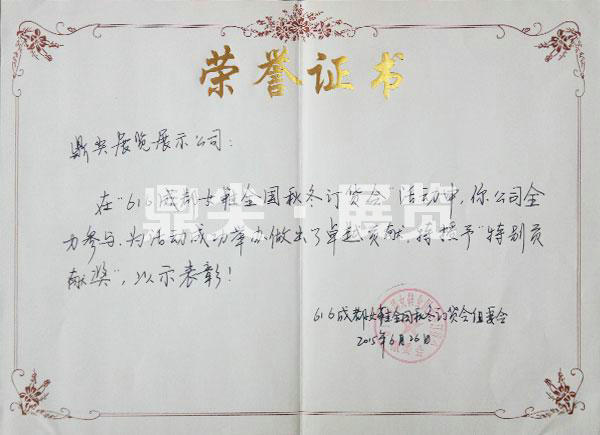 荣誉证书
鼎尖展览展示公司：
在“616成都女鞋全国秋冬订货会”活动中，你公司全
力参与，为活动成功举办做出了卓越贡献，特授予“特别贡
献奖”，以示表彰！
鼎尖·展览
616成都女鞋全国秋冬订货会组委会
2015年6月26日